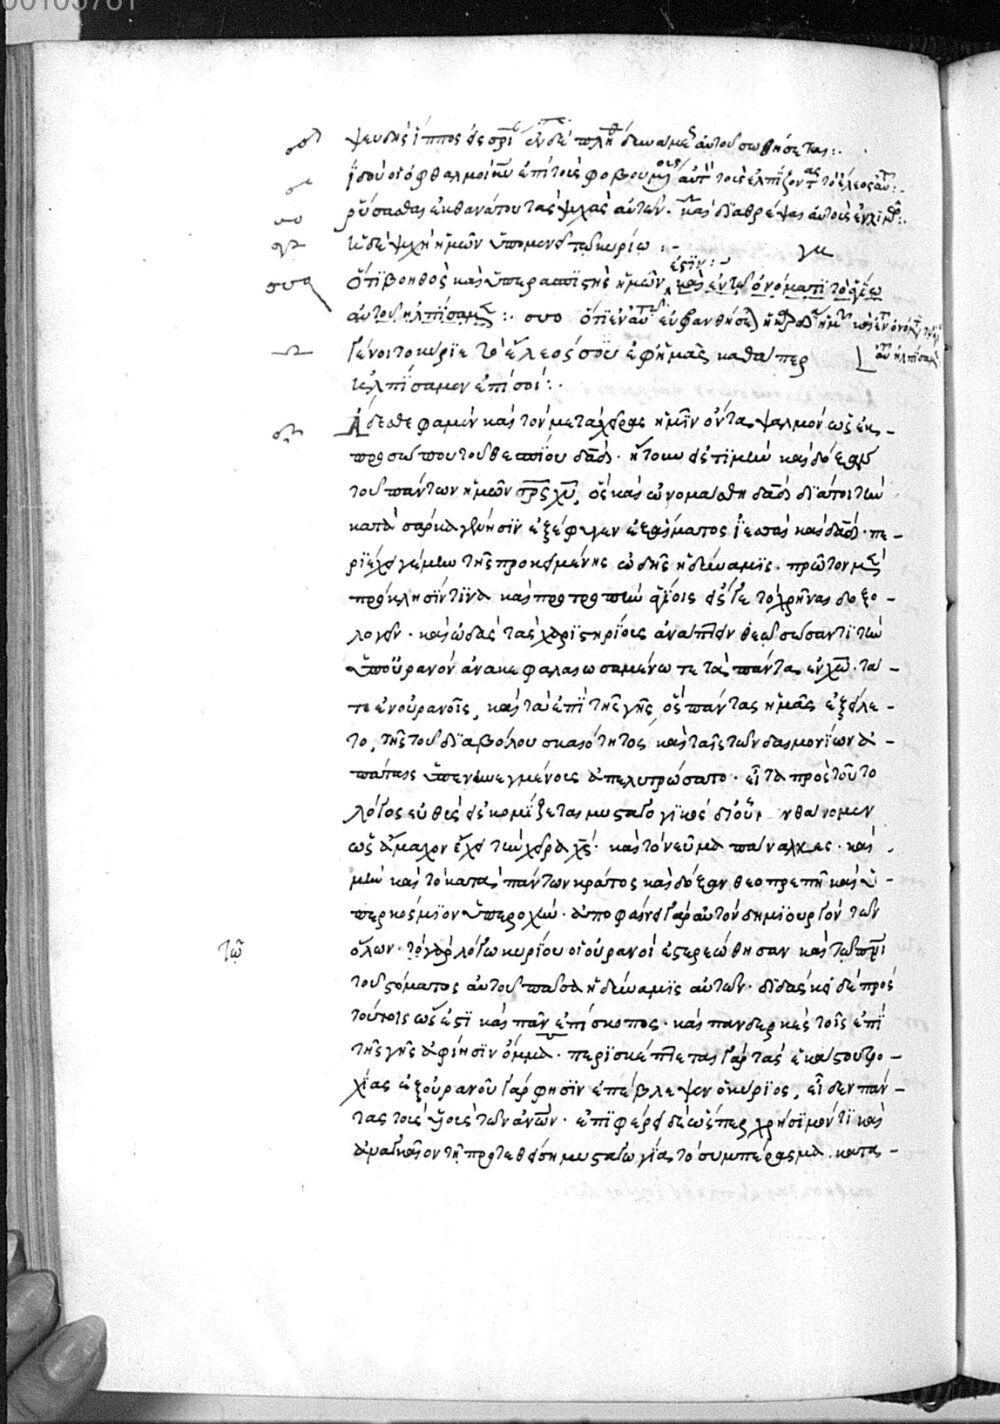 00105781
ψευδὴς ἵππος εἰς σρι ἐν δὲ πλη δυνάμε αὐτοῦ σωθήσεται:
ἰδοὺ οἱ ὀφθαλμοὶ κυ ἐπὶ τοὺς φοβουμ αυτ τοὺς ἐλπίζοντ τὸ ἔλεος αυτ:
ῥύσασθαι ἐκ θανάτου τὰς ψχὰς αὐτῶν. καὶ διαθρέψαι αὐτοὺς ἐν λιμῶ:
ἡ δὲ ψχὴ ἡμῶν ὑπομενεῖ τῶ κυρίω:
ὅτι βοηθὸς καὶ ὑπερασπιστὴς ἡμῶν ἐστιν: καὶ ἐν τῶ ὀνόματι τῶ ἁγίω
αὐτοῦ ἠλπίσαμ: ὅτι ἐν αυτῶ εὐφρανθήσε ἡ καρδ ἡμ καὶ ἐν
γένοιτο κύριε τὸ ἔλεός σου ἐφ ἡμᾶς καθάπερ
ἠλπίσαμεν ἐπὶ σοί:
Ἀδέσθε φαμὲν καὶ τὸν μετὰ χεῖρας ἡμῖν ὄντα ψαλμὸν ὡς ἐκ
προσώπου τοῦ θεσπεσίου δαδ. ἤτουν εἰς τιμὴν καὶ δόξαν
τοῦ πάντων ἡμῶν σρς χυ, ὃς καὶ ὠνομάσθη δαδ διά τοι τὴν
κατὰ σάρκα γέννησιν ἐξέφυγεν ἐκ σπέρματος ἰεσσαὶ καὶ δαδ. πε
ριέχει γε μὴν τῆς προκειμένης ὠδῆς ἡ δύναμις. πρῶτον μὲν
πρόκλησίν τινα καὶ προτροπὴν ἁγίοις εἴς γε τὸ χρῆναι δοξο
λογεῖν. καὶ ὠδὰς τὰς χαριστηρίους ἀνάπτειν θεῶ σώσαντι τὴν
ὑπουρανὸν ἀνακεφαλαιωσαμένω τε τὰ πάντα ἐν χω. τά
τε ἐν οὐρανοῖς, καὶ τὰ ἐπὶ τῆς γῆς, ὃς πάντας ἡμᾶς ἐξείλε
το, τῆς τοῦ διαβόλου σκαιότητος καὶ ταῖς τῶν δαιμονίων ἀ
πάταις ὑπενηνεγμένους ἀπελυτρώσατο. εἶτα πρὸς τοῦτο
λόγος εὐθὺς εἰσκομίζεται μυσταγωγικὸς δι οὗ μανθάνομεν
ὡς ἄμαχον ἔχει τὴν χεῖρα χς. καὶ τὸ νεῦμα παναλκές. καὶ
μὴν καὶ τὸ κατὰ πάντων κράτος καὶ δόξαν θεοπρεπῆ καὶ ὑ
περκόσμιον ὑπεροχήν. ἀποφαίνει γὰρ αὐτὸν δημιουργὸν τῶν
τω
ὅλων. τῶ γὰρ λόγω κυρίου οἱ οὐρανοὶ ἐστερεώθησαν καὶ τῶ πνι
τοῦ στόματος αὐτοῦ πᾶσα ἡ δύναμις αὐτῶν. διδάσκει δὲ πρὸς
τούτοις ὡς ἔστι καὶ πανεπίσκοπος. καὶ πανδερκὲς τοῖς ἐπὶ
τῆς γῆς ἀφίησιν ὄμμα. περισκέπτεται γὰρ τὰς ἑκάστου ψυ
χίας ἐξ οὐρανοῦ γάρ φησιν ἐπέβλεψεν ὁ κύριος, εἶδεν πάν
τας τοὺς υἱοὺς τῶν ἀνων. ἐπιφέρει δὲ ὥσπερ χρήσιμόν τι καὶ
ἀναγκαῖον τῆ προτεθείση μυσταγωγία τὸ συμπέρασμα. κατα